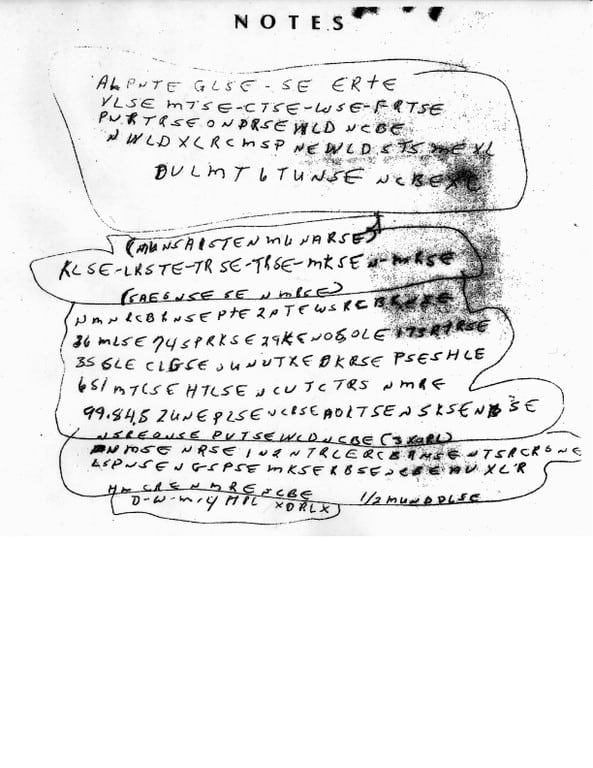 NOTES
ALPNTE GLSE-SE ERTE
VLSE MTSE-CTSE-WSE-FRTSE
PNRTRSEONDRSEWLD NCBE
NWLDXLRCMSP NEWLDSTSMEXL
DULMT6TUNSE NCBEXL
(MUNSAISTENMUNARSE)
KLSE-LRSTE-TRSE-TRSE-MKSEN-MRSE
(SAEGNSESENMRSE)
NMNRCBRNSEPTE2NTEWSRCBRNSE
36MLSE74SPRKSE29KENOSOLE173RTRSE
35GLE CLGSEOUNUTXEDKRSE PSESHLE
651MTCSE HTLSENCUTCTRS NMRE
99.84.52UNEPLSENCRSEAOLTSENSKSENBSE
NSREONSE PVTSEWLDNCBE(3XORL)
NMSE NRSE IN2NTRLERCBRNSENTSRCRONE
LSPNSENGSPSEMKSERBSENCBEAUXLR
HMCRENMRENCBE 1/2MUNDDLSE
D-W-M-14 MPL XDRLX